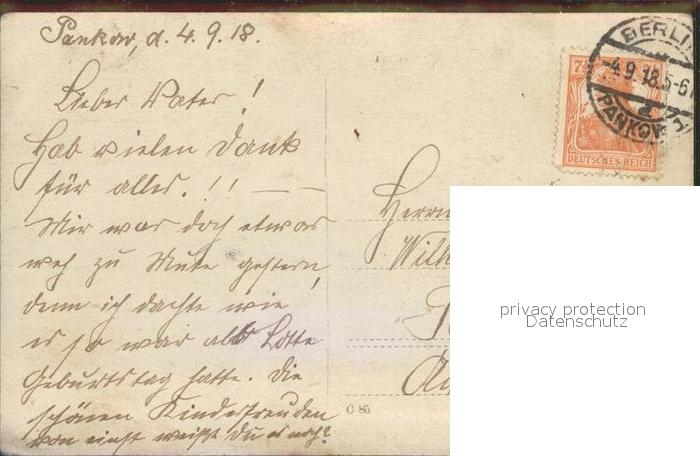 Pankow, d. 4. 9. 18.
Lieber Vater!
Hab vielen Dank
für alles.!! — —
Mir war doch etwas
weh zu Mute gestern,
denn ich dachte wie
es so war als Lotte
Geburtstag hatte. Die
schönen Kinderfreuden
von einst weißt Du es noch?
BERLIN
4.9.18.5-6
PANKOW
DEUTSCHES REICH
Herrn
Wilh
O 86
privacy protection
Datenschutz